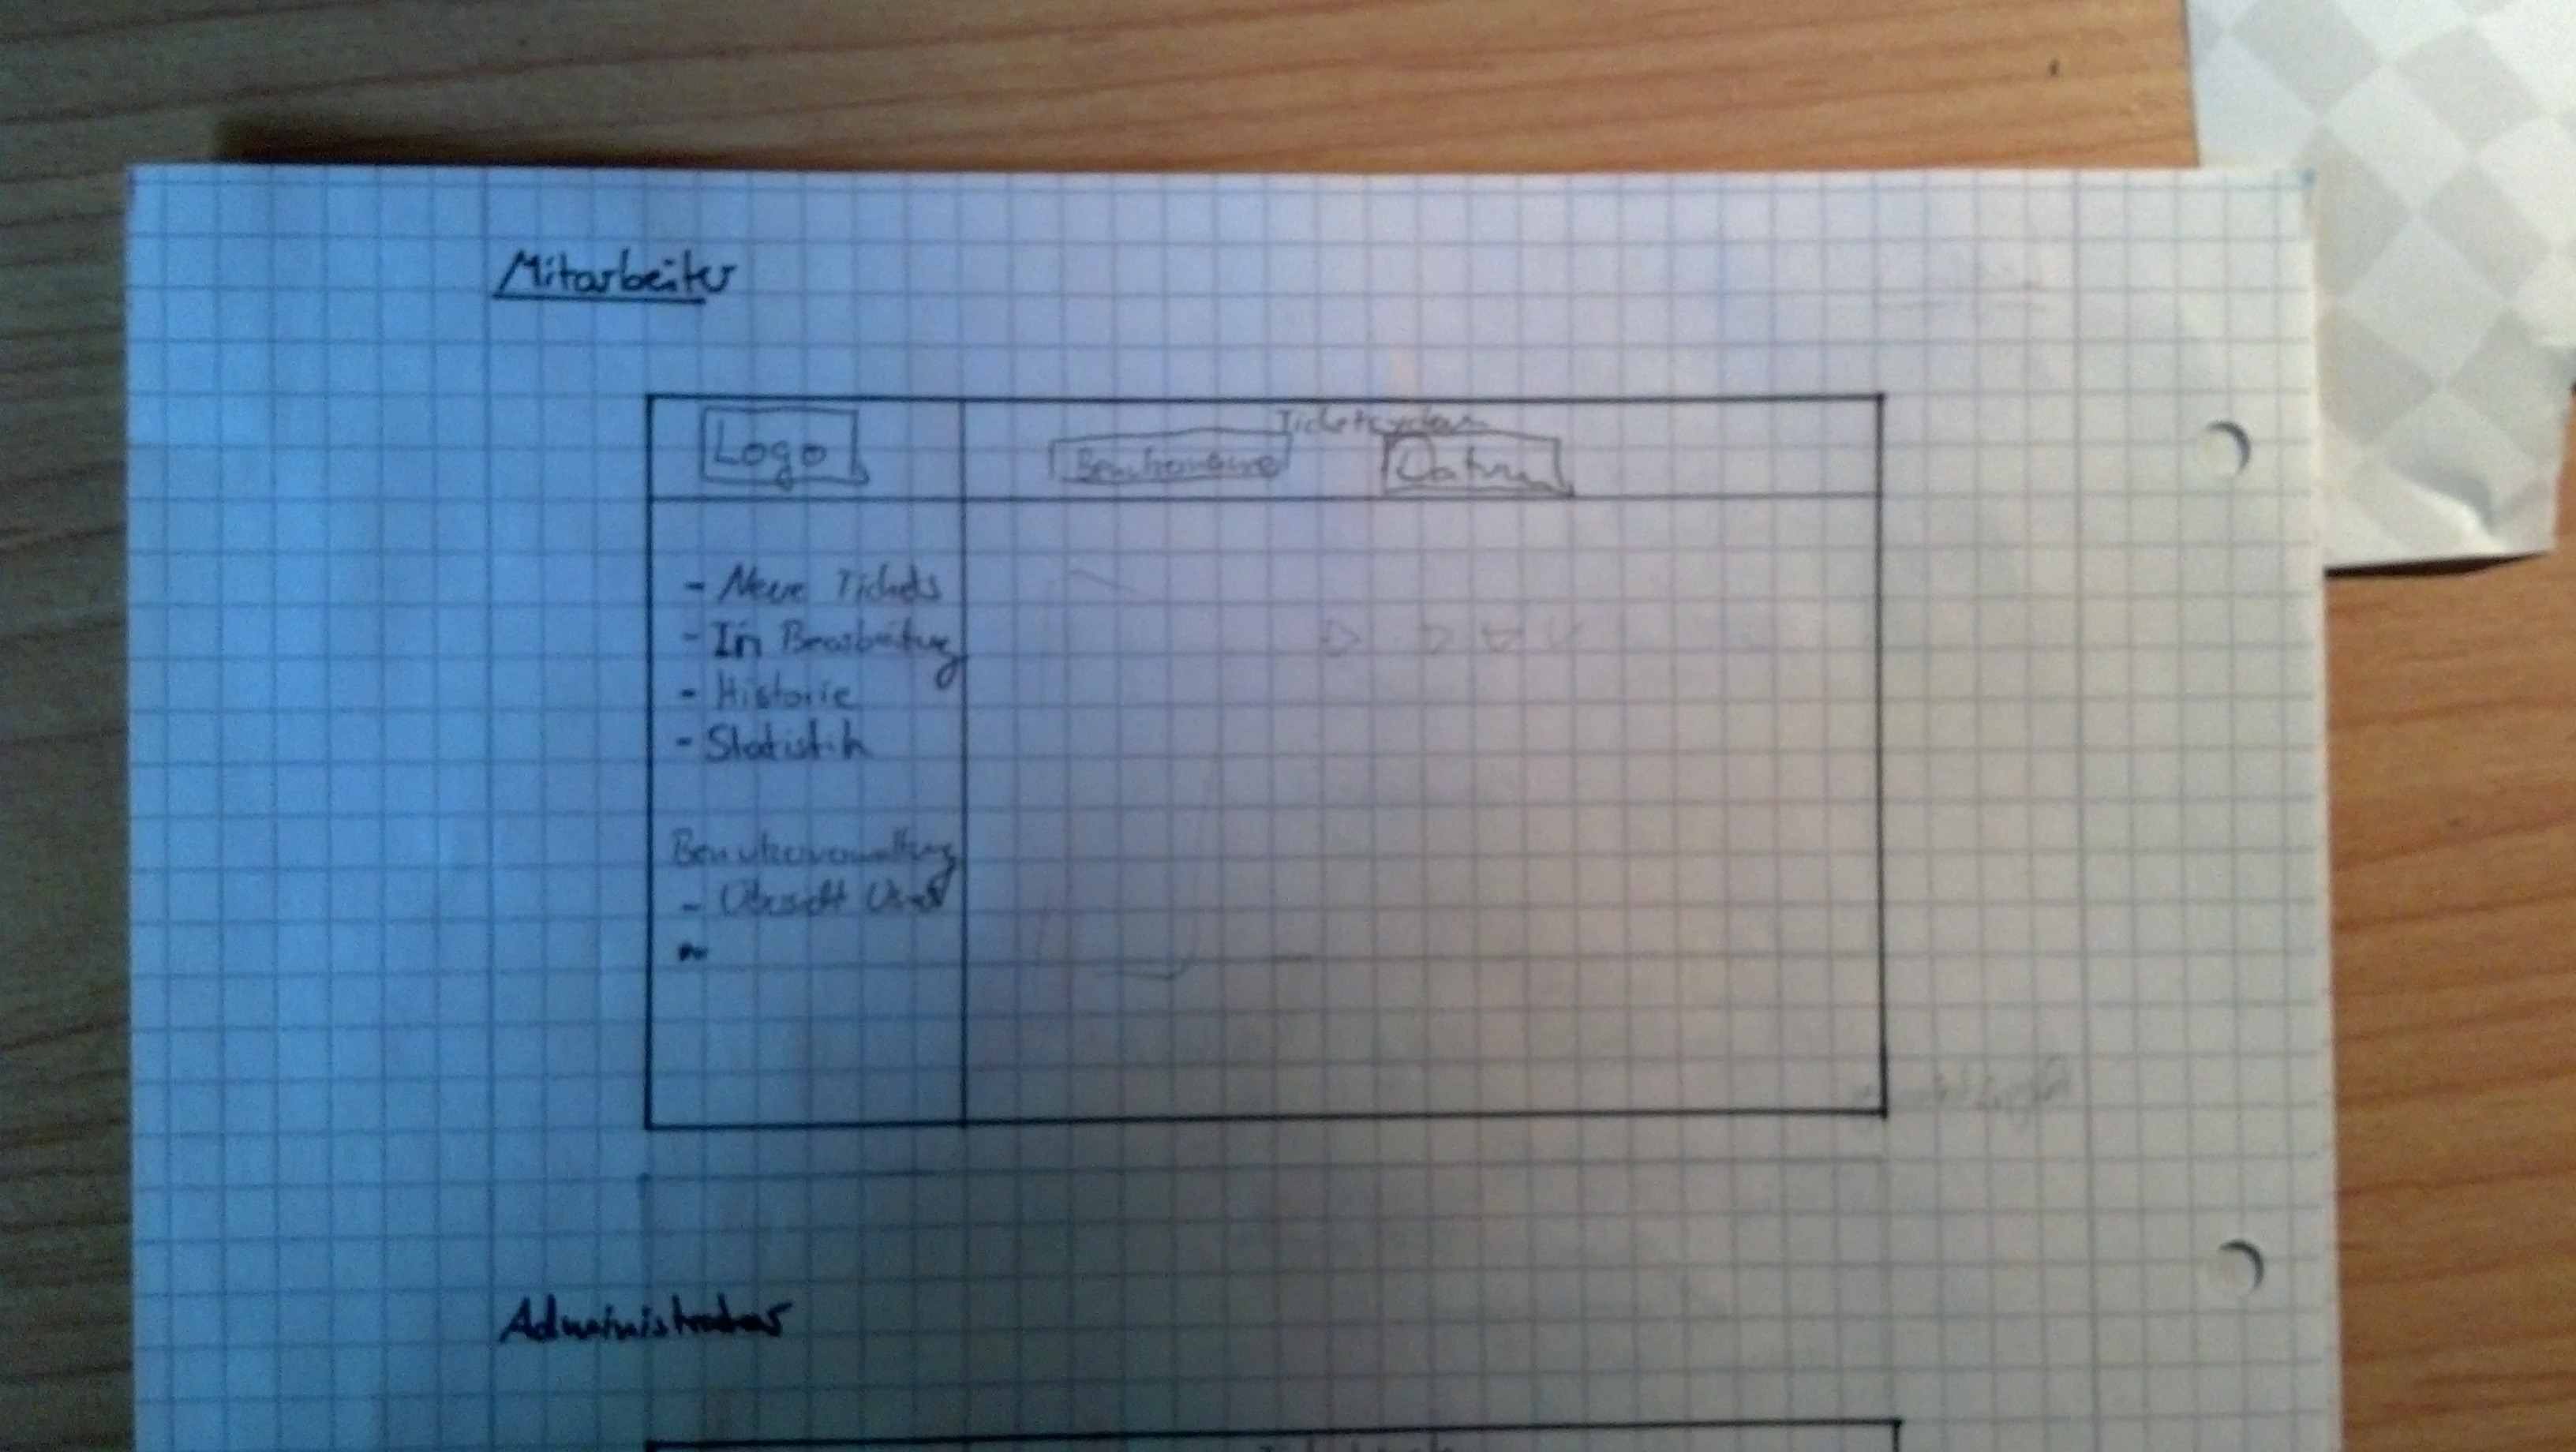 Mitarbeiter
Logo
Ticketsystem
Benutzername
Datum
- Neue Tickets
- In Bearbeitung
- Historie
- Statistik
Benutzerverwaltung
- Übersicht User
Administrator